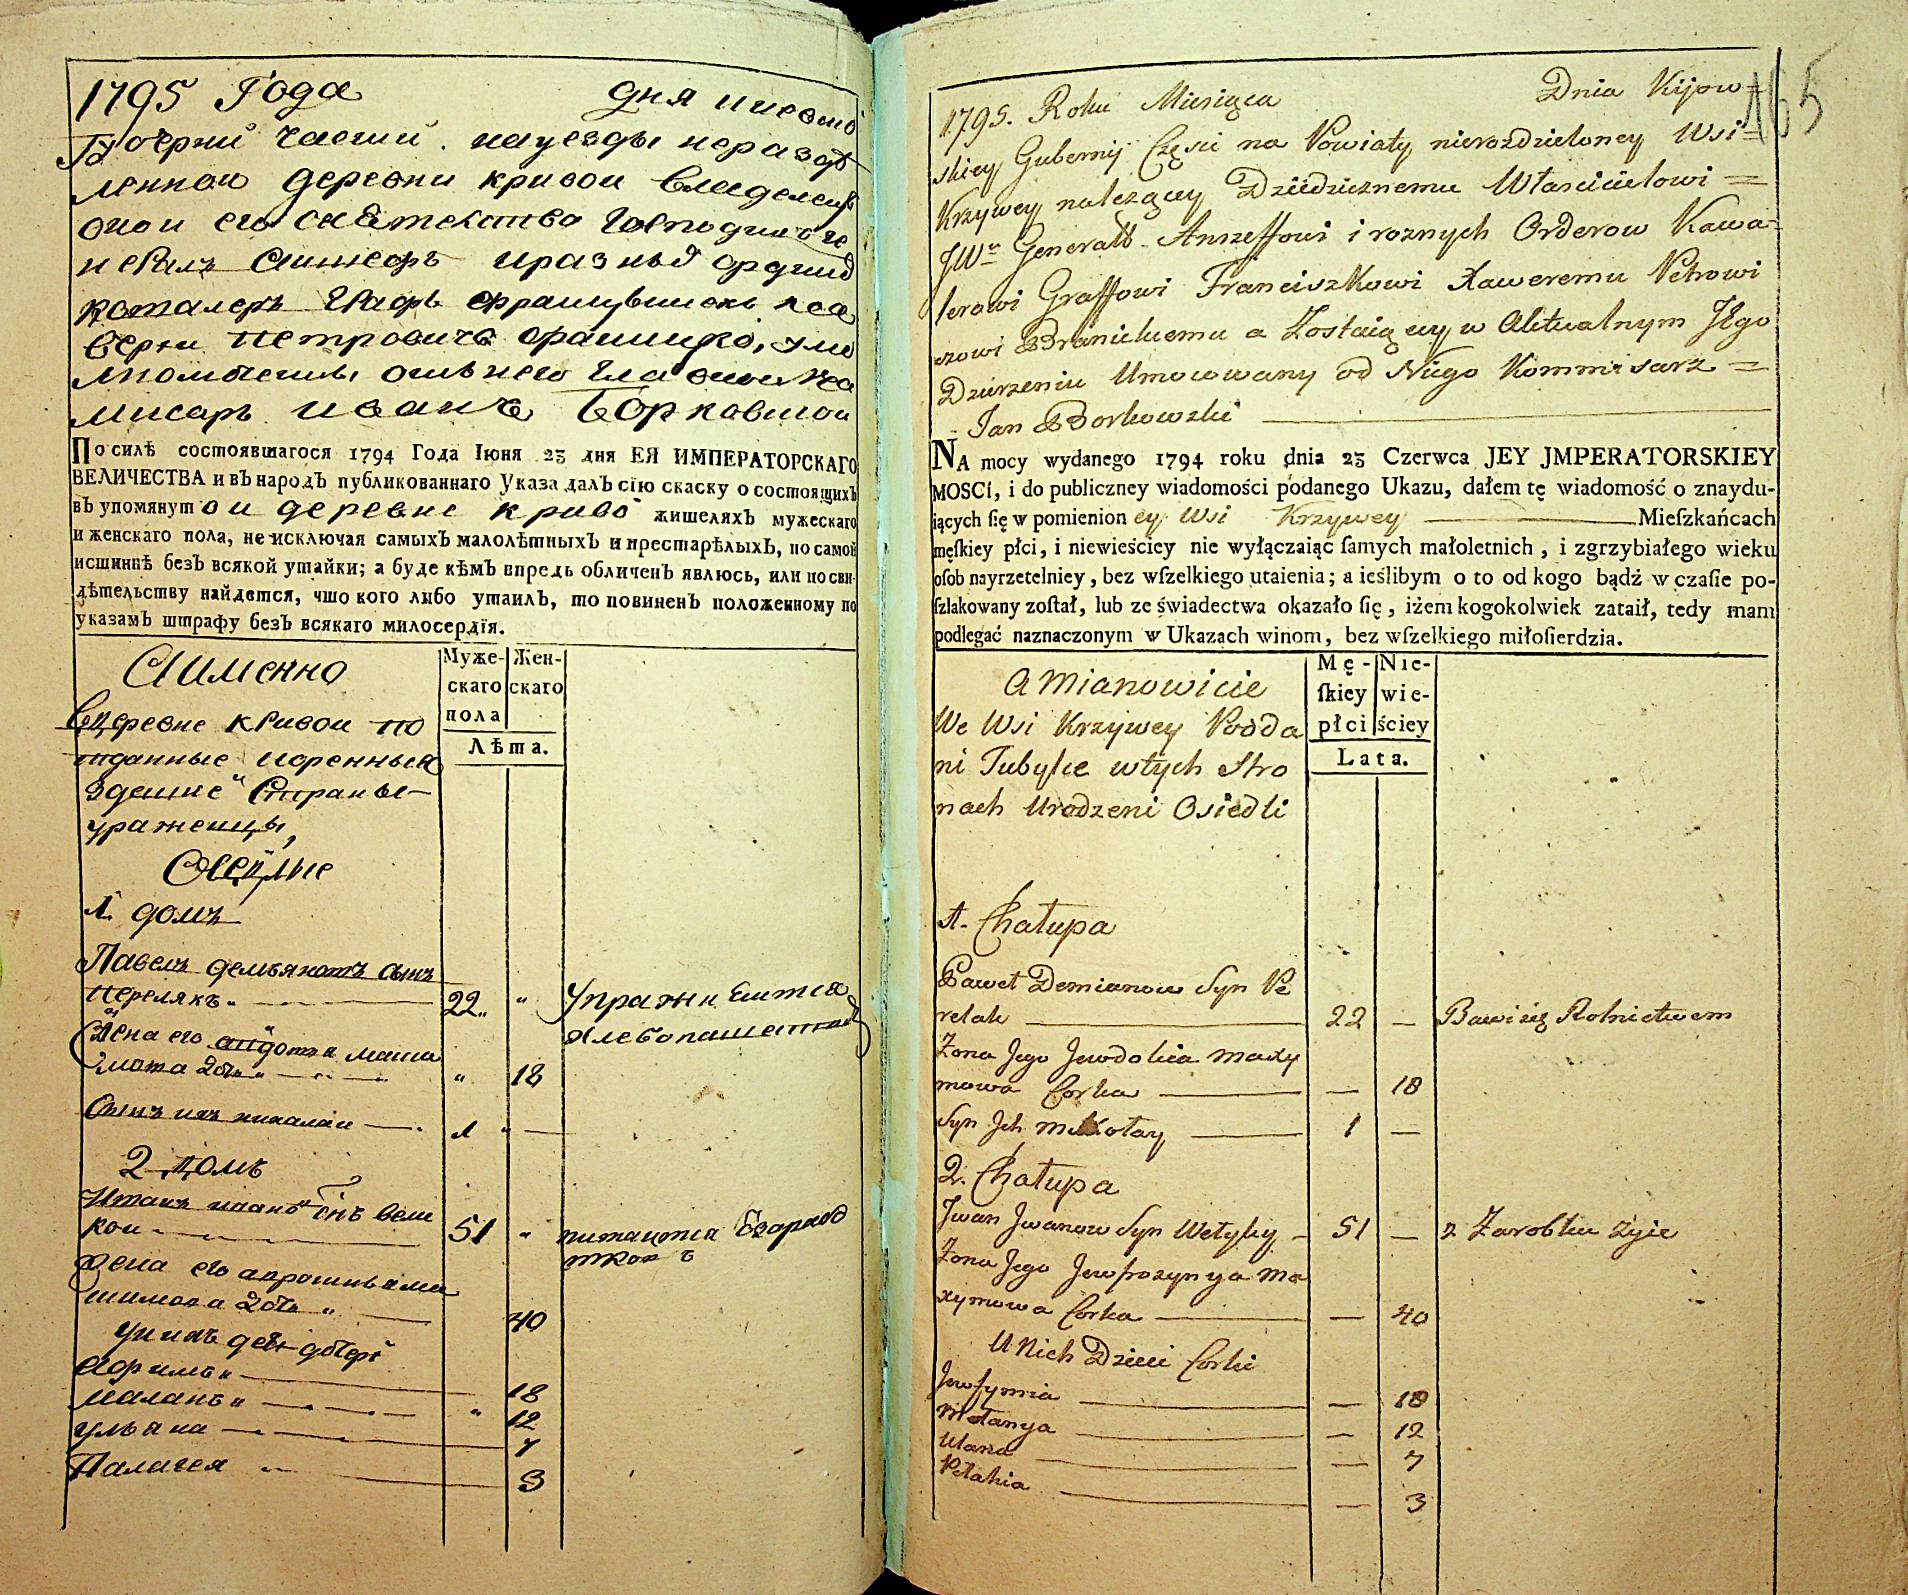 1795 Года дня киевско
Губернии части на уезды неразде
ленной деревни кривои владелец
его сиятельства Господина ге
нерал аншефъ и разныхъ ордино
ковалеръ Графъ францишекъ кса
верии петровичь браницко,
отъ него главнои ко
мисаръ иванъ Борковскои
По силѣ состоявшагося 1794 Года Іюня 23 дня ЕЯ ИМПЕРАТОРСКАГО
ВЕЛИЧЕСТВА и въ народъ публикованнаго Указа далъ сію скаску о состоящихъ
въ упомянутои деревне криво жителяхъ мужескаго
и женскаго пола, не исключая самыхъ малолѣтныхъ и престарѣлыхъ, по самой
истиннѣ безъ всякой утайки; а буде кѣмъ впредь обличенъ явлюсь, или по сви-
дѣтельству найдется, что кого либо утаилъ, то повиненъ положенному по
указамъ штрафу безъ всякаго милосердія.
Аименно
Муже- Жен-
скаго скаго
пола
Лѣта.
Вдеревне кривои по
тданные коренныя
здешне Страны
уроженцы,
Оседлые
1. домъ
Павелъ демьяновъ сынъ
перелякъ 22 „ упражняется
хлебопашеством
Жена его авдотья макси
мова дочь „ 18
Сынъ ихъ николаи 1 „
2 домъ
Иванъ ивановъ сынъ вели
кои 51 „ питается Ззарабо
тковъ
Жена его апросинья ма
симова дочь 40
у нихъ дети дочери
Афимья 18
маланья „ 12
ульяна 7
Палагея 3
165
1795. Roku Miesiąca Dnia Kijow=
skiey Gubernij Części na Powiaty nierozdzieloney Wsi=
Krzywey należącey Dziedzicznemu Właścicielowi =
JWu Generałł Anszeffowi i roznych Orderow Kawa=
lerowi Graffowi Franciszkowi Xaweremu Petrowi
czowi Branickiemu a Zostaiącey w Aktualnym JEgo
Dzierzeniu Umocowany od Niego Kommisarz =
Jan Borkowski
NA mocy wydanego 1794 roku dnia 23 Czerwca JEY JMPERATORSKIEY
MOSCI, i do publiczney wiadomości podanego Ukazu, dałem tę wiadomość o znaydu-
iących ſię w pomienioney Wsi Krzywey Mieſzkańcach
męſkiey płci, i niewieściey nie wyłączaiąc ſamych małoletnich, i zgrzybiałego wieku
oſob nayrzetelniey, bez wſzelkiego utaienia; a ieślibym o to od kogo bądź w czaſie po-
ſzlakowany zoſtał, lub ze świadectwa okazało ſię, iżem kogokolwiek zataił, tedy mam
podlegać naznaczonym w Ukazach winom, bez wſzelkiego miłoſierdzia.
A Mianowicie
Mę- Nie-
ſkiey wie-
płci ściey
Lata.
We Wsi Krzywey Podda
ni Tubylce wtych Stro
nach Urodzeni Osiedli
1. Chałupa
Paweł Demianow Syn Pe
relak 22 — Bawi się Rolnictwem
Zona Jego Jewdokia Maxy
mowa Corka — 18
Syn Jch Mikołay 1 —
2. Chałupa
Jwan Jwanow Syn Wełyky 51 — z Zarobku Żyie
Zona Jego Jewfrozynya Ma
xymowa Corka — 40
U Nich Dzieci Corki
Jewfymia — 18
Mełanya — 12
Ulana — 7
Pełahia — 3